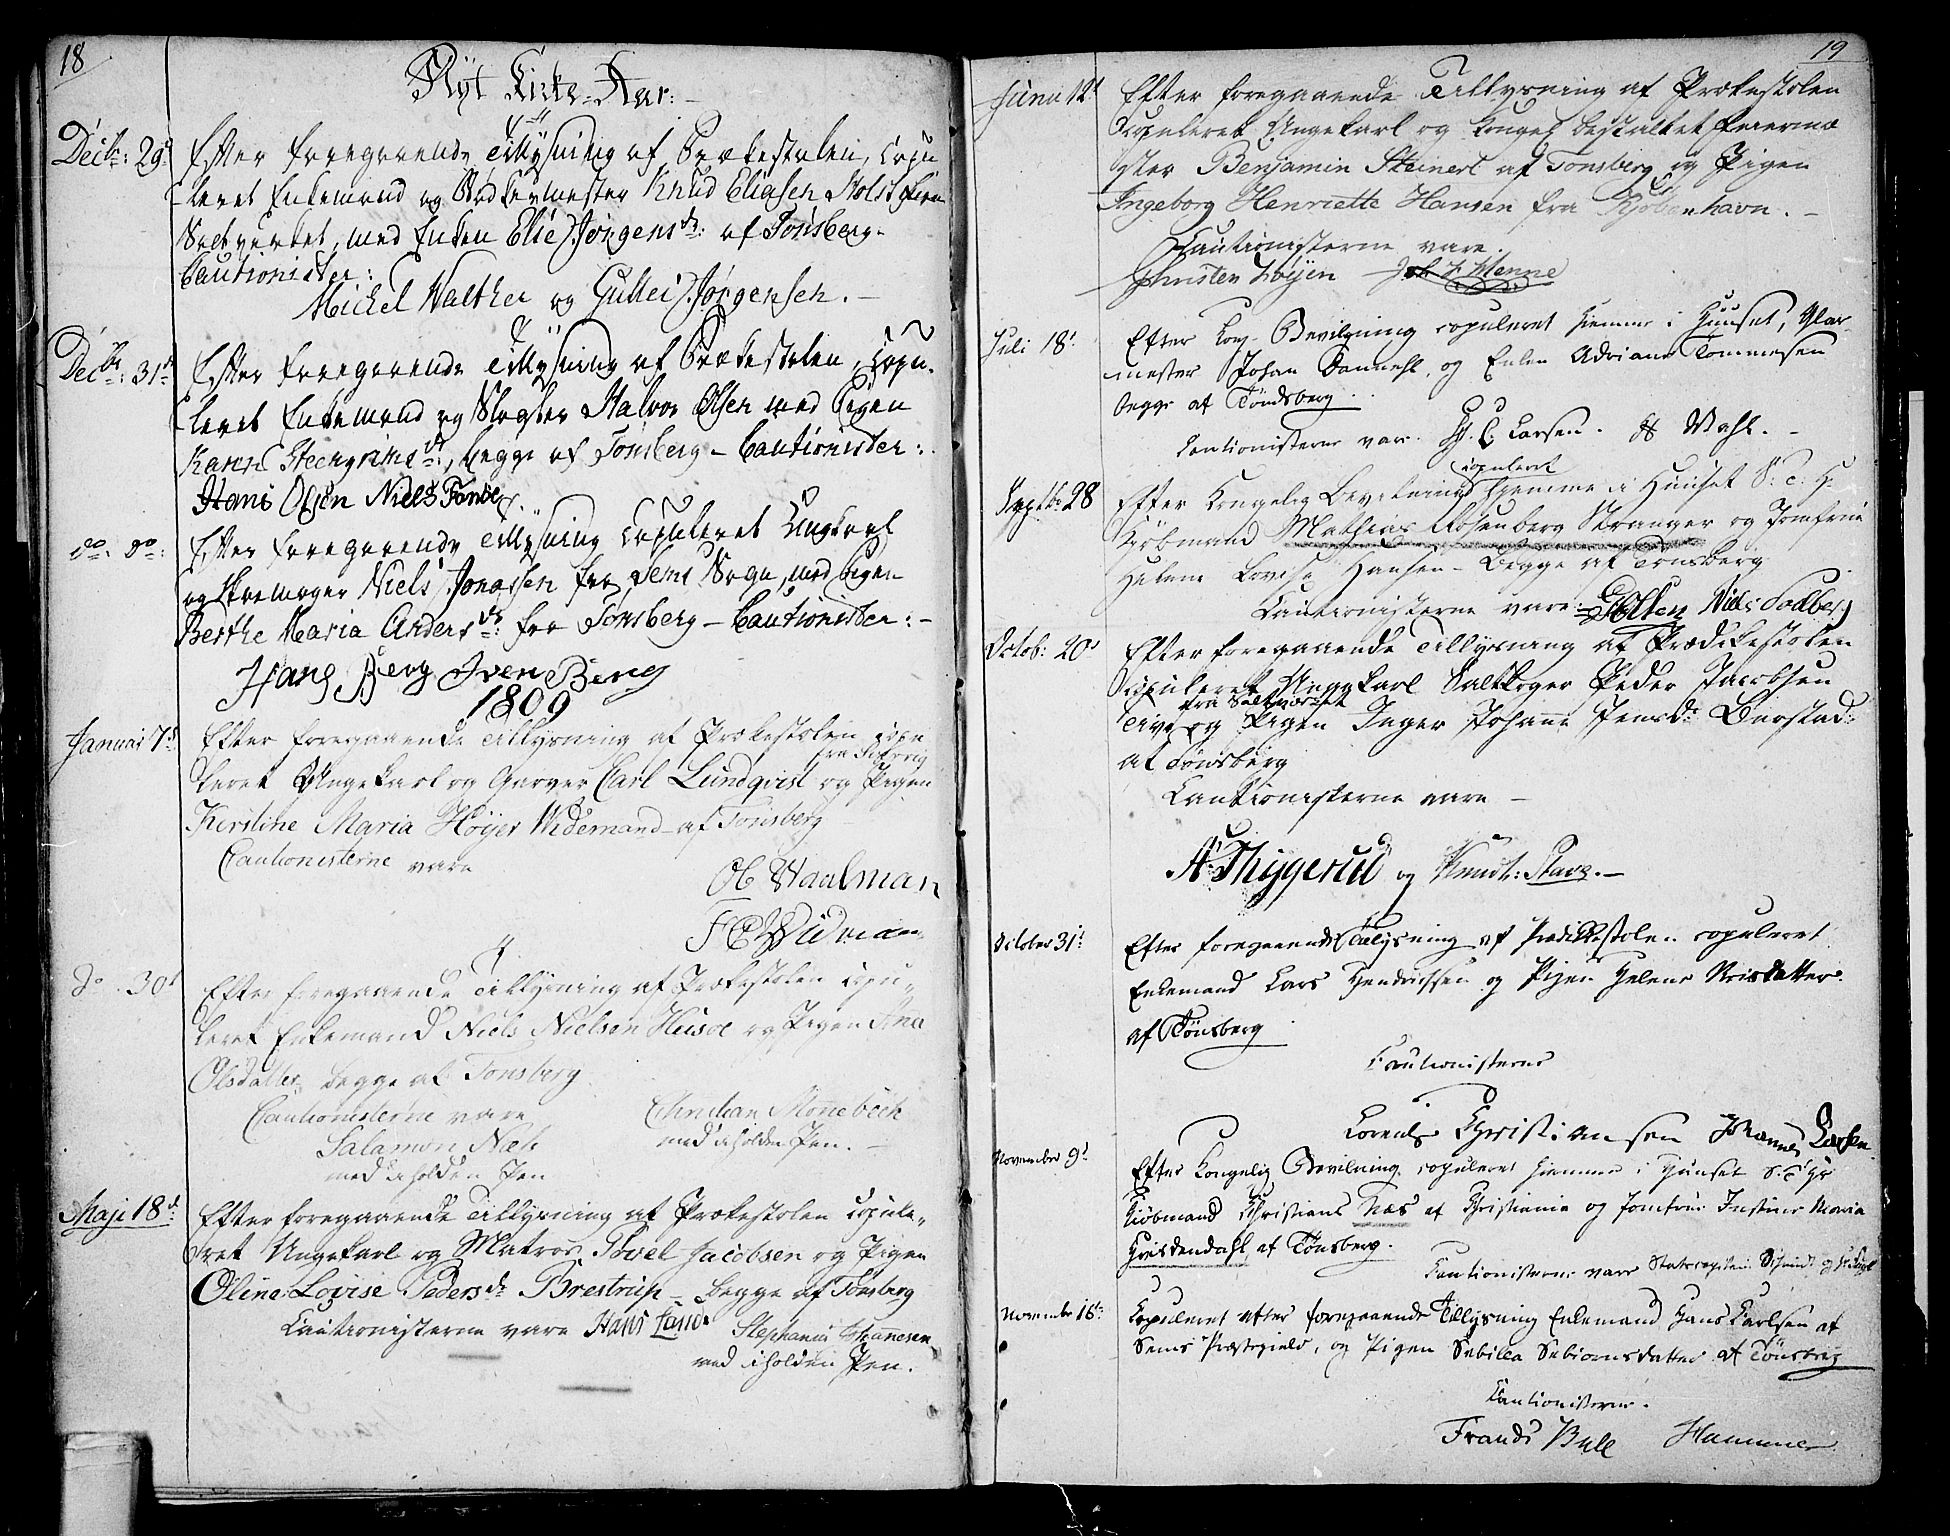 18
Nÿt Kirke-Aar:
Decbr: 29d Efter foregaaende Tillÿsning af Prækestolen, Copu
leret Enkemand og Bødkermester Knud Eliasen Holst fra
Saltverket, med Enken Elie Jørgensdr: af Tønsberg-
Cautionister:
Michel Walther og Gullei Jørgensen.-
Decbr: 31d Efter foregaaende Tillÿsning af Prækestolen, Copu-
leret Enkemand og Slagter Halvor Olsen med Pigen
Karen Steengrimsdr:, begge af Tønsberg - Cautionister:
Hans Olsen Niels
do: do: Efter foregaaende Tillÿsning Copuleret Ungkarl
og Skomager Niels Jonassen fra Sems Sogn, med Pigen
Berthe Maria Andersdr: fra Tønsberg - Cautionister:-
Hans Berg Iven Berg
1809
Januar 7d Efter foregaaende Tillÿsning af Prækestolen copu
leret Ungekarl og Garver Carl Lundqvist og Pigen
Kirstine Maria Höijer Widemand - af Tønsberg
Cautionisterne vare
Ol Waalman
F C Widman
do. 30t Efter foregaaende Tillÿsning af Prækestolen copu-
leret Enkemand Niels Nielsen Huisoe og Pigen Ana
Olsdatter, begge af Tønsberg
Cautionisterne vare Christian Monnebech
Salamon Niels med iholden Pen.-
med iholden Pen
Maji 18d: Efter foregaaende Tillÿsning af Prækestolen copule-
ret Ungekarl og Matros Povel Jacobsen og Pigen
Oline Lovise Pedersdr Brestrup - begge af Tønsberg
Cautionisterne vare Hans Stephanus Johannesen
med iholden Pen.
19
Junii 12t Efter foregaaende Tillysning af Prækestolen
Copuleret Ungekarl og Konges bestaltet Feiermæ
ster Benjamin Steinert af Tønsberg og Pigen
Ingeborg Henriette Hansen fra Kjøbenhavn.-
Cautionisterne vare.
Christen Høijen Joh
Juli 18t. Efter Kong. Bevilgning copuleret hiemme i Huuset, Glar-
mester Johan Danneht, og Enken Adriane Tommesen
begge af Tøndsberg..
Cautionisterne var. Larsen. Wahl.-
copuleret
Septbr 28 Efter Kongelig Bevilning hjemme i Huuset S: T: Hr
Kjöbmand Mathias Rosenberg Stranger og Jomfrue
Helene Lovise Hansen - Begge af Tønsberg
Cautionisterne vare: Niels Fodberg
Octob: 20t Efter foregaaende Tillysning af Prædikestolen
Copuleret Ungkarl Saltkoger Peder Jacobsen
fra Saltværket
og Pigen Inger Johanne Jensdr Berstad:
af Tønsberg
Cautionisterne vare -
A. Thygerud og Knudt: Stave.-
October 31t: Efter foregaaende Tillysning af Prædikestolen copuleret
Enkemand Lars Hendrichsen og Pigen Helene Nrisdatter
af Tønsberg
Cautionisterne
Lorents Christiansen Johannes Larsen
November 9t Efter Kongelig Bevilning copuleret hiemme i Huuset S.T. Hr
Kiöbmand Christians Næs af Christiania og Jomfrue Justine Maria
Gröidendahl af Tønsberg.
Cautionisterne vare
November 16t: Copuleret efter foregaaende Tillysning Enkemand Hans Carlsen af
Sems Præstegield, og Pigen Sebilla Sebiornsdatter af Tönsberg
Cautionisterne.
Frands Bull Hammer